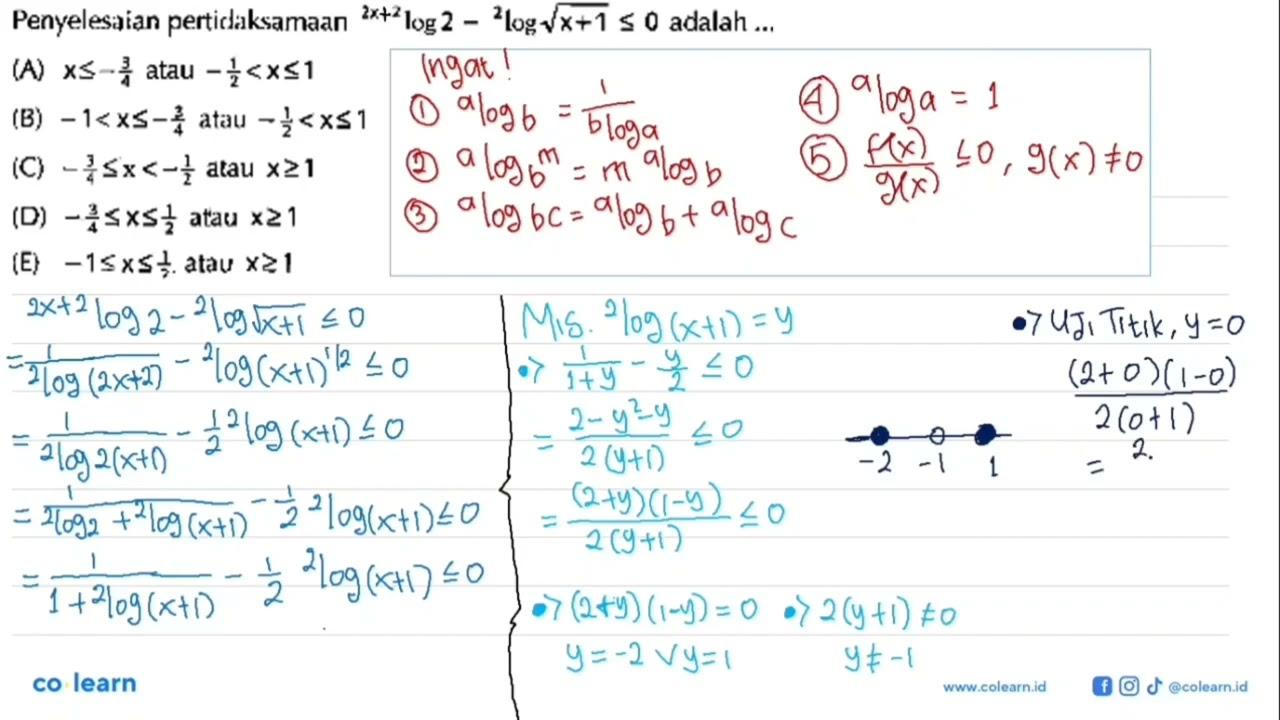 Penyelesaian pertidaksamaan ²ˣ⁺²log 2 − ²log √(x+1) ≤ 0 adalah ...
(A) x ≤ −3/4 atau −1/2 < x ≤ 1
(B) −1 < x ≤ −3/4 atau −1/2 < x ≤ 1
(C) −3/4 ≤ x < −1/2 atau x ≥ 1
(D) −3/4 ≤ x ≤ 1/2 atau x ≥ 1
(E) −1 ≤ x ≤ 1/2 atau x ≥ 1
Ingat!
① ᵃlog b = 1/(ᵇlog a)
② ᵃlog bᵐ = m ᵃlog b
③ ᵃlog bc = ᵃlog b + ᵃlog c
④ ᵃlog a = 1
⑤ f(x)/g(x) ≤ 0, g(x) ≠ 0
²ˣ⁺²log 2 − ²log √(x+1) ≤ 0
= 1/(²log (2x+2)) − ²log (x+1)^(1/2) ≤ 0
= 1/(²log 2(x+1)) − 1/2 ²log (x+1) ≤ 0
= 1/(²log 2 + ²log (x+1)) − 1/2 ²log (x+1) ≤ 0
= 1/(1 + ²log (x+1)) − 1/2 ²log (x+1) ≤ 0
Mis. ²log (x+1) = y
•> 1/(1+y) − y/2 ≤ 0
= (2 − y² − y)/(2(y+1)) ≤ 0
= ((2+y)(1−y))/(2(y+1)) ≤ 0
•> (2+y)(1−y) = 0
y = −2 ∨ y = 1
•> 2(y+1) ≠ 0
y ≠ −1
−2 −1 1
•> Uji Titik, y = 0
((2+0)(1−0))/(2(0+1))
= 2.
co learn
www.colearn.id
@colearn.id